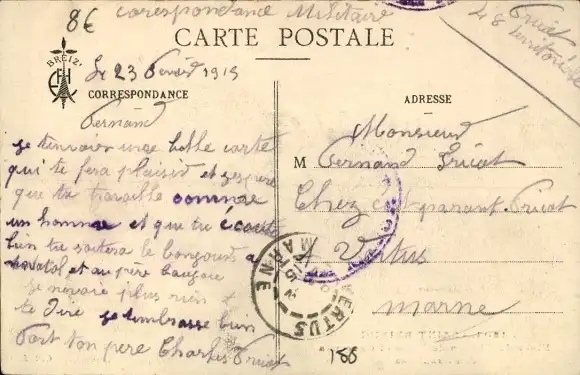 8€
Corespondance Militaire
Priat
48 territoriale
CARTE POSTALE
BREIZ'
Le 23 1915
CORRESPONDANCE
ADRESSE
Fernand
je tenvoie une belle carte
qui te fera plaisir et jespere
que tu travaille comme
un homme et que tu écoute
bien tu soitera le bonjour a
et au père
je voie plus rien
te dire je tembrasse bien
fort ton pere Charles Priat
Monsieur
M Fernand Priat
Chez ces parant Priat
A Vertus
Marne
VERTUS
MARNE
186